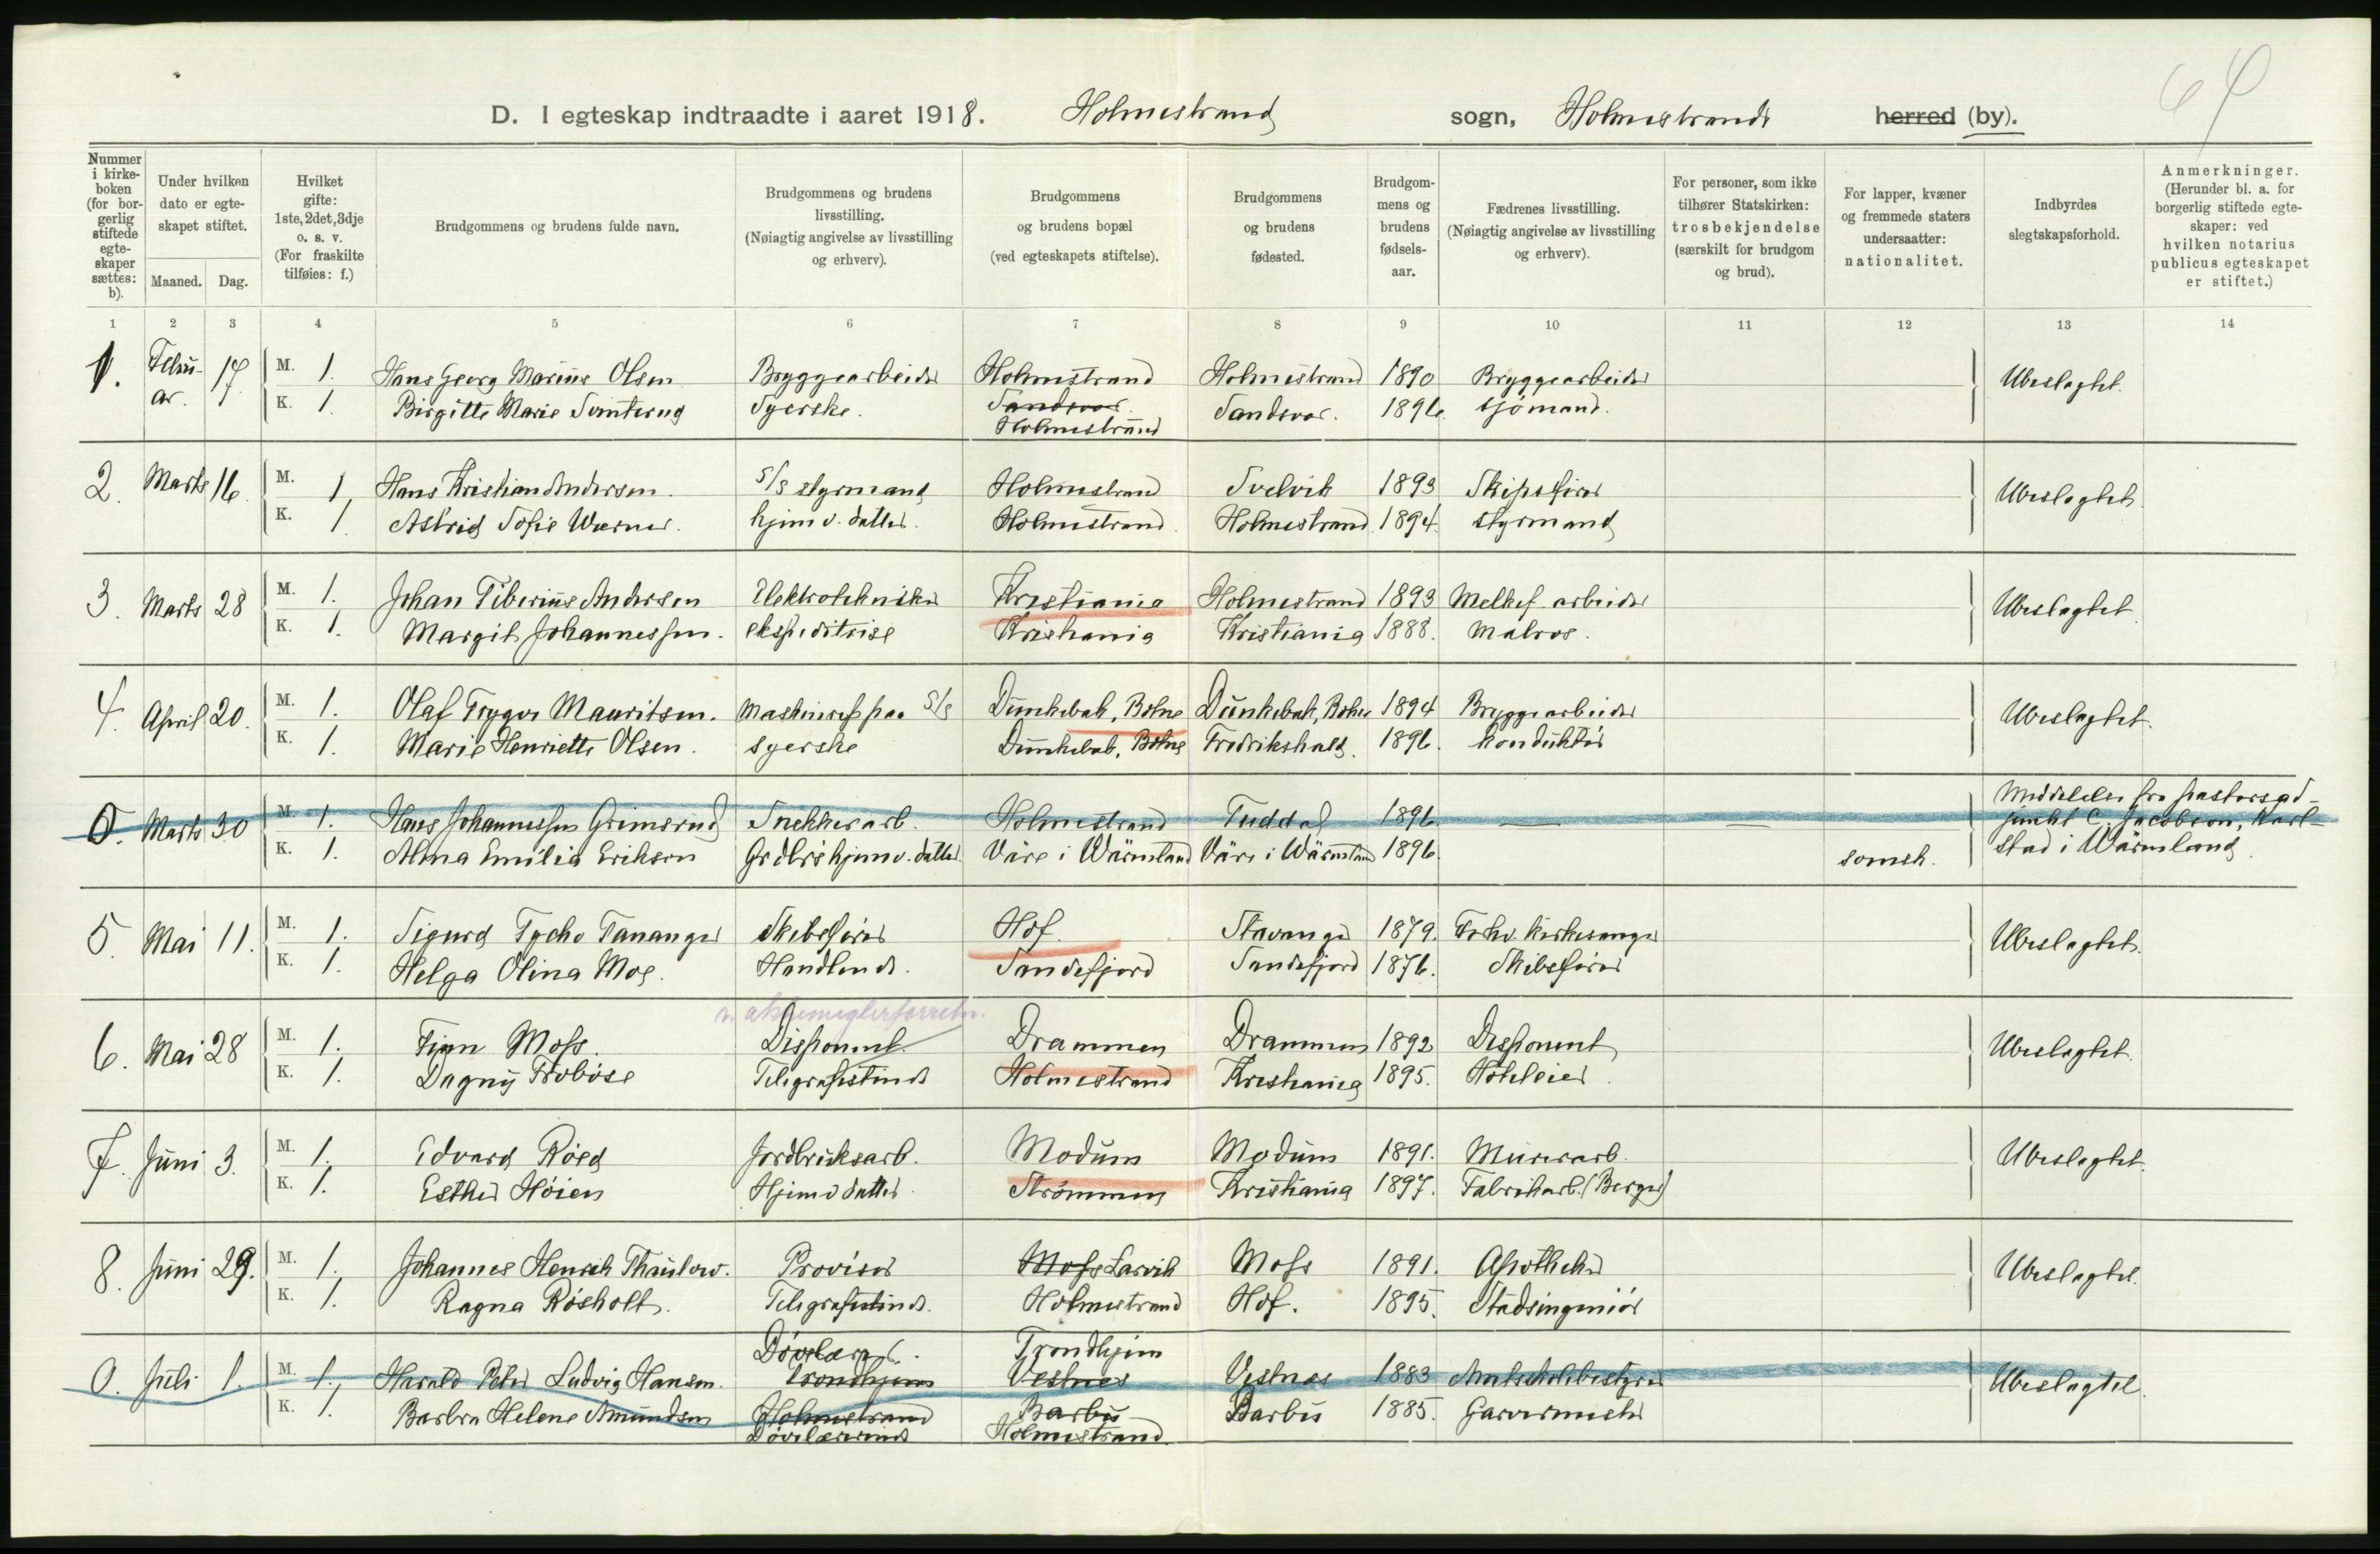 64
D. I egteskap indtraadte i aaret 1918. Holmestrand sogn, Holmestrands herred (by).
Nummer i kirkeboken (for borgerlig stiftede egteskaper sættes: b).
Under hvilken dato er egteskapet stiftet.
Maaned. Dag.
Hvilket gifte: 1ste, 2det, 3dje o. s. v. (For fraskilte tilføies: f.)
Brudgommens og brudens fulde navn.
Brudgommens og brudens livsstilling. (Nøiagtig angivelse av livsstilling og erhverv).
Brudgommens og brudens bopæl (ved egteskapets stiftelse).
Brudgommens og brudens fødested.
Brudgommens og brudens fødselsaar.
Fædrenes livsstilling. (Nøiagtig angivelse av livsstilling og erhverv).
For personer, som ikke tilhører Statskirken: trosbekjendelse (særskilt for brudgom og brud).
For lapper, kvæner og fremmede staters undersaatter: nationalitet.
Indbyrdes slegtskapsforhold.
Anmerkninger. (Herunder bl. a. for borgerlig stiftede egteskaper: ved hvilken notarius publicus egteskapet er stiftet.)
1 2 3 4 5 6 7 8 9 10 11 12 13 14
1. Februar. 17. M. 1. Hans Georg Marius Olsen Bryggearbeider Holmestrand Holmestrand 1890 Bryggearbeider Ubeslegtet.
K. 1. Birgitte Marie Syerske. Sandsvær. Sandsvær. 1896. sjömand.
Holmestrand
2. Marts 16. M. 1. Hans Kristian Andersen. S/S styrmand Holmestrand Svelvik 1893 Skipsfører Ubeslegtet
K. 1. Astrid Sofie Werner. hjemv. datter. Holmestrand Holmestrand 1894. styrmand
3. Marts 28 M. 1. Johan Tiberius Andersen Elektrotekniker Kristiania Holmestrand 1893 Melkef. arbeider Ubeslegtet
K. 1. Margit Johannessen. ekspeditrise Kristiania Kristiania 1888. Malros.
4. April 20. M. 1. Olaf Trygve Mauritsen. Maskinref paa S/S Dunkebæk, Botne Dunkebæk, Botne 1894 Bryggearbeider Ubeslegtet.
K. 1. Marie Henriette Olsen. syerske Dunkebæk, Botne Fredrikshald. 1896. konduktør
0. Marts 30 M. 1. Hans Johannessen Grimsrud Snekkerarb. Holmestrand Tuddal 1896. — — Meddelelse fra pastorsad-
junkt C. Jacobson, Karl-
K. 1. Alma Emilia Erikson Grdbrs hjemv. datter. Väre i Wärmland Väre i Wärmland 1896. svensk. stad i Wärmland.
5. Mai 11. M. 1. Sigurd Tycho Tananger Skibsfører Hof. Stavanger 1879. Forhv. kirkesanger Ubeslegtet.
K. 1. Helga Olina Moe. Handlende. Sandefjord Sandefjord 1876. Skibsfører
v. aktiemeglerforretn.
6. Mai 28 M. 1. Finn Moss. Disponent. Drammen Drammen 1892 Disponent Ubeslegtet.
K. 1. Dagny Frobøse Telegrafistinde Holmestrand Kristiania 1895. Hoteleier.
7. Juni 3. M. 1. Edvard Røed Jordbruksarb. Modum Modum 1891. Murerarb. Ubeslegtet.
K. 1. Esther Höien Hjemv datter. Strømmen Kristiania 1897. Fabrikarb. (Berger)
8. Juni 29. M. 1. Johannes Henrik Thaulow. Provisor Moss Larvik Moss 1891. Apotheker Ubeslegtet.
K. 1. Ragna Røsholt. Telegrafistinde. Holmestrand Hof. 1895. Stadsingeniør
Døvelærer. Trondhjem
0. Juli 1. M. 1. Harald Peter Ludvig Hansen. Trondhjem Vestnes Vestnes 1883 Amtsskolebestyrer Ubeslegtet.
K. 1. Barbra Helene Amundsen Holmestrand Barbu Barbu 1885. Garvermester
Døvelærerinde Holmestrand